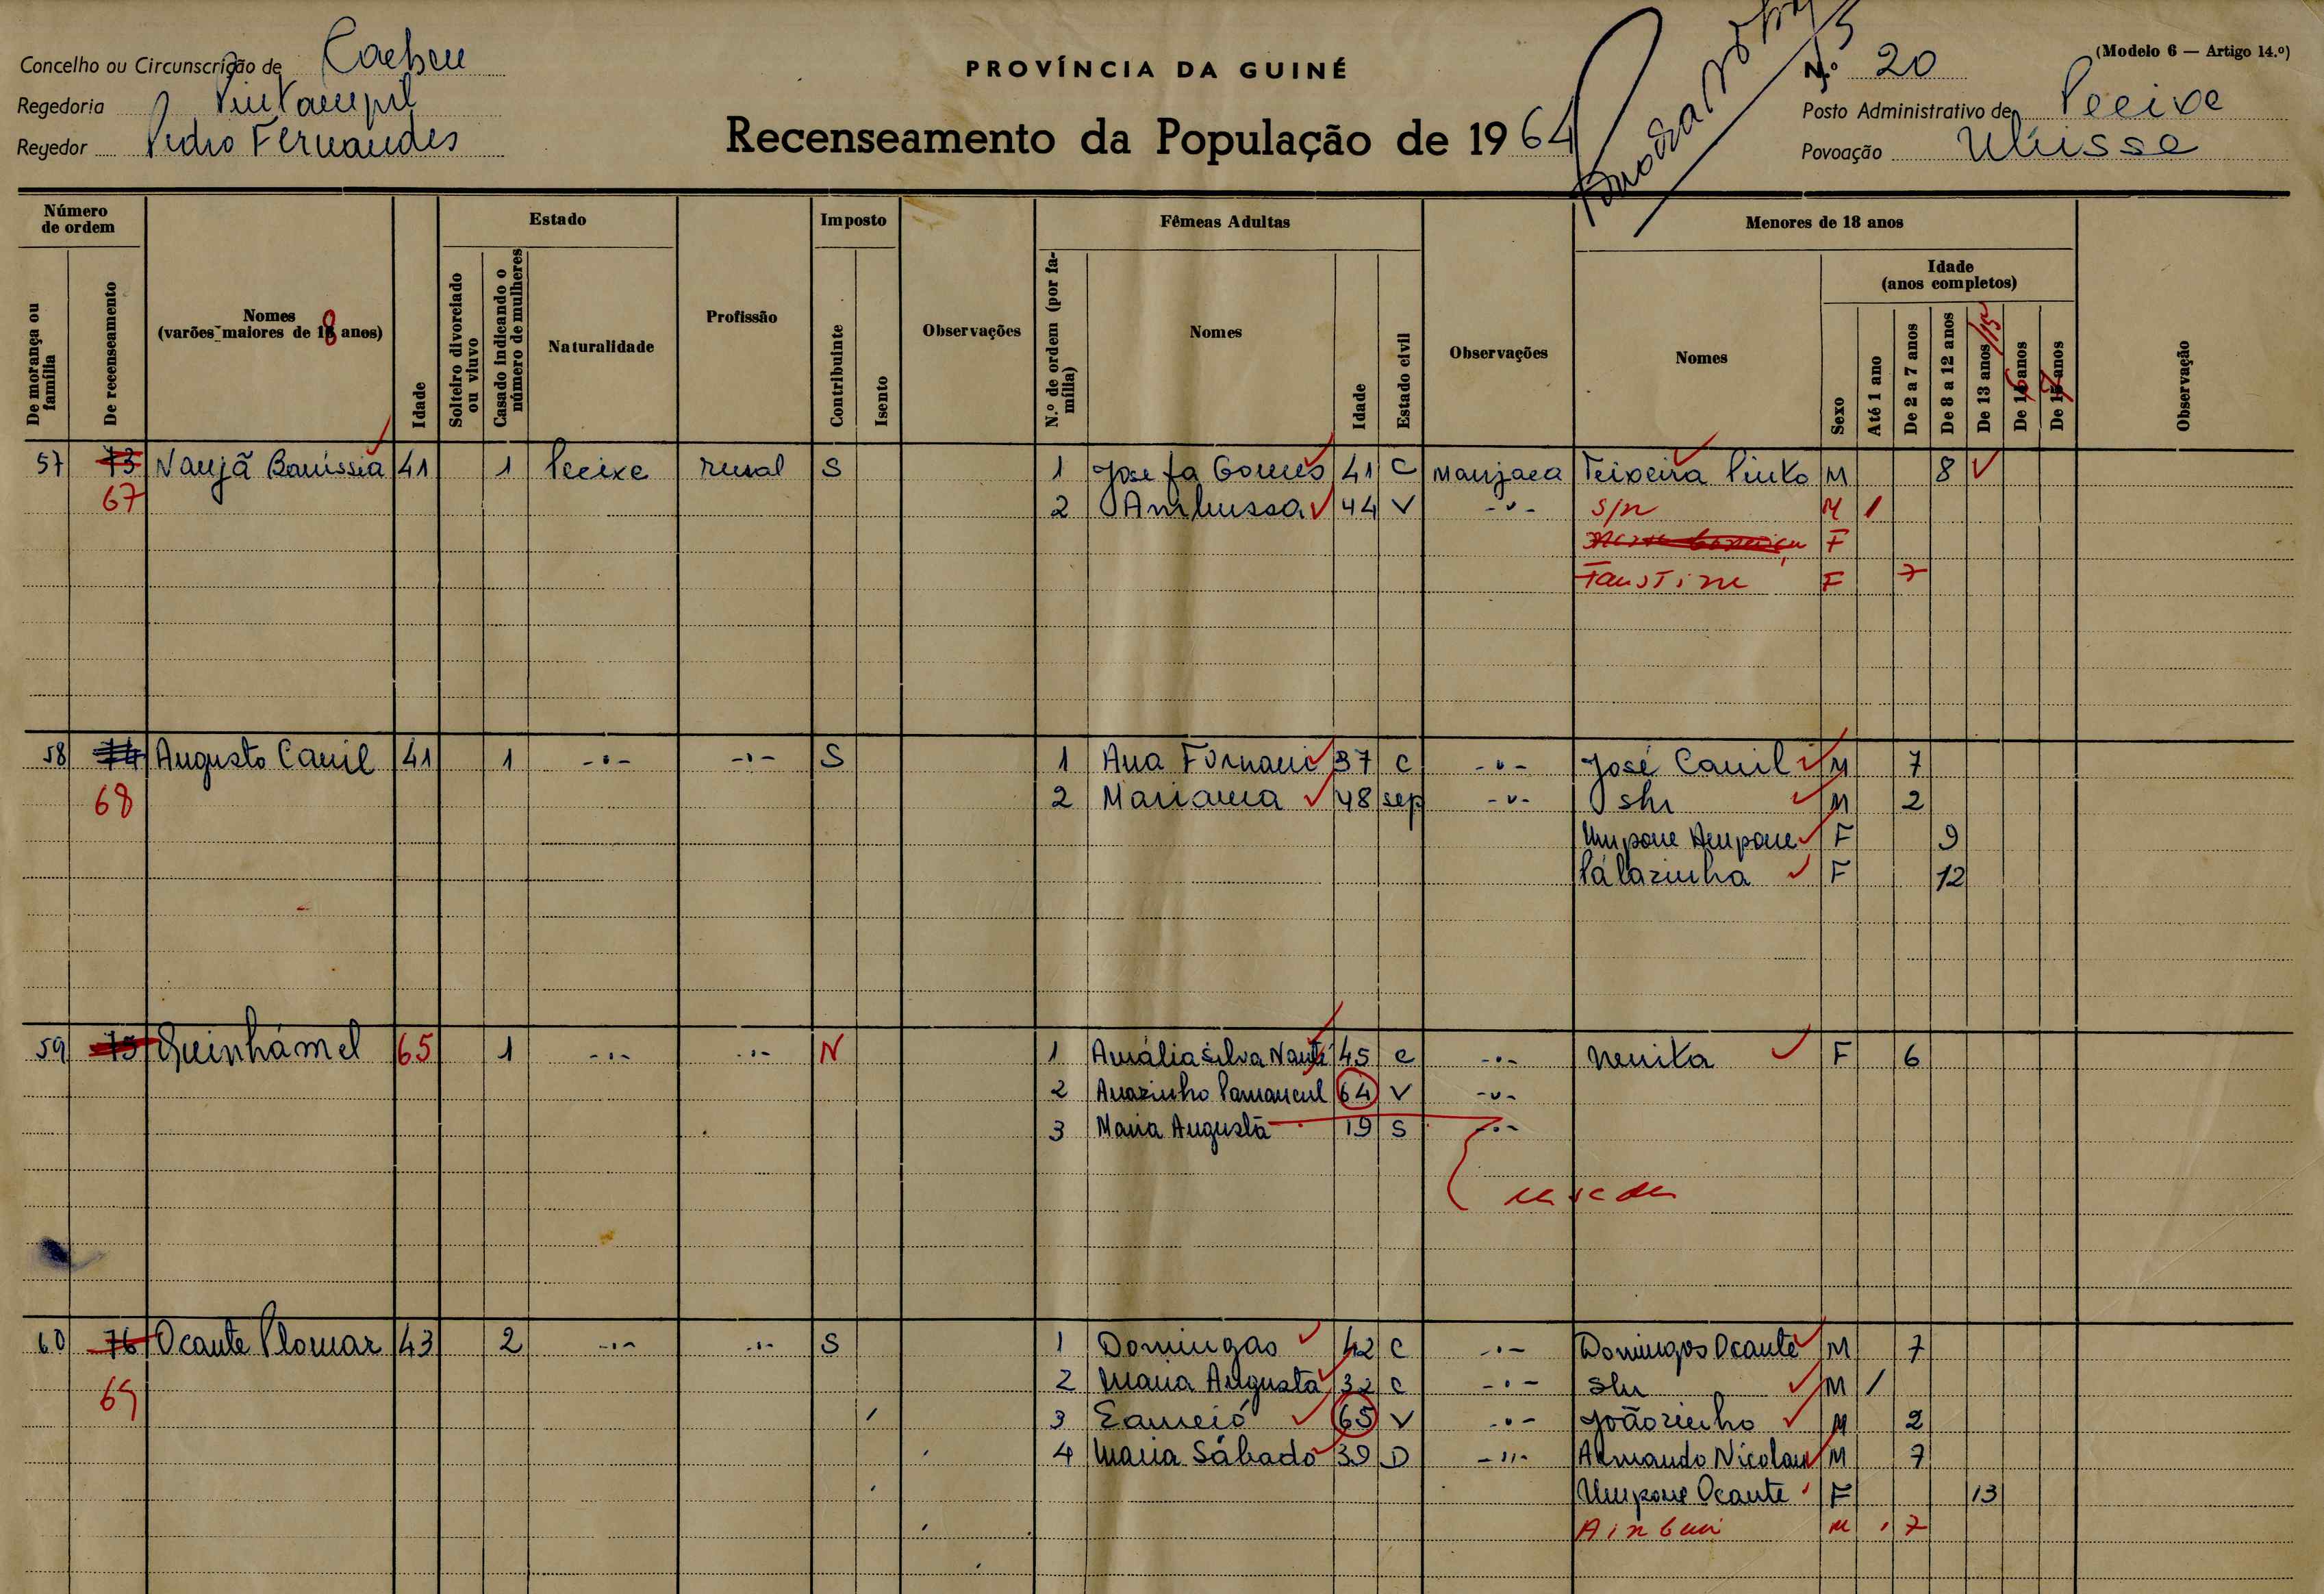 Concelho ou Circunscrição de Cacheu
Regedoria
Regedor Pedro Fernandes
PROVÍNCIA DA GUINÉ
Recenseamento da População de 1964
(Modelo 6 — Artigo 14.º)
N.º 20
Posto Administrativo de Pecixe
Povoação
Número de ordem
De morança ou família
De recenseamento
Nomes
(varões maiores de 18 anos)
Idade
Estado
Solteiro divorciado ou viuvo
Casado indicando o número de mulheres
Naturalidade
Profissão
Imposto
Contribuinte
Isento
Observações
Fêmeas Adultas
N.º de ordem (por família)
Nomes
Idade
Estado civil
Observações
Menores de 18 anos
Nomes
Sexo
Idade
(anos completos)
Até 1 ano
De 2 a 7 anos
De 8 a 12 anos
De 13 anos /15
De 16 anos
De 17 anos
Observação
57 73 Naujã Banissia 41 1 Pecixe rural S 1 Josefa Gomes 41 C Manjaca Teixeira Pinto M 8
67 2 Ambussa 44 V -"- S/n M 1
F
Faustine F 7
58 74 Augusto Canil 41 1 -"- -"- S 1 Ana 37 C -"- José Canil M 7
68 2 Mariama 48 sep -"- s/n M 2
Umpone Ampone F 9
Pálazinha F 12
59 75 Quinhámel 65 1 -"- -"- N 1 Amália Silva 45 C -"- Nenita F 6
2 64 V -"-
3 Maria Augusta 19 S -"-
60 76 Ocante Plomar 43 2 -"- -"- S 1 Domingas 42 C -"- Domingos Ocante M 7
69 2 Maria Augusta 32 C -"- s/n M 1
3 65 V -"- Joãozinho M 2
4 Maria Sábado 39 D -"- Armando Nicolau M 7
Umpone Ocante F 13
M 7